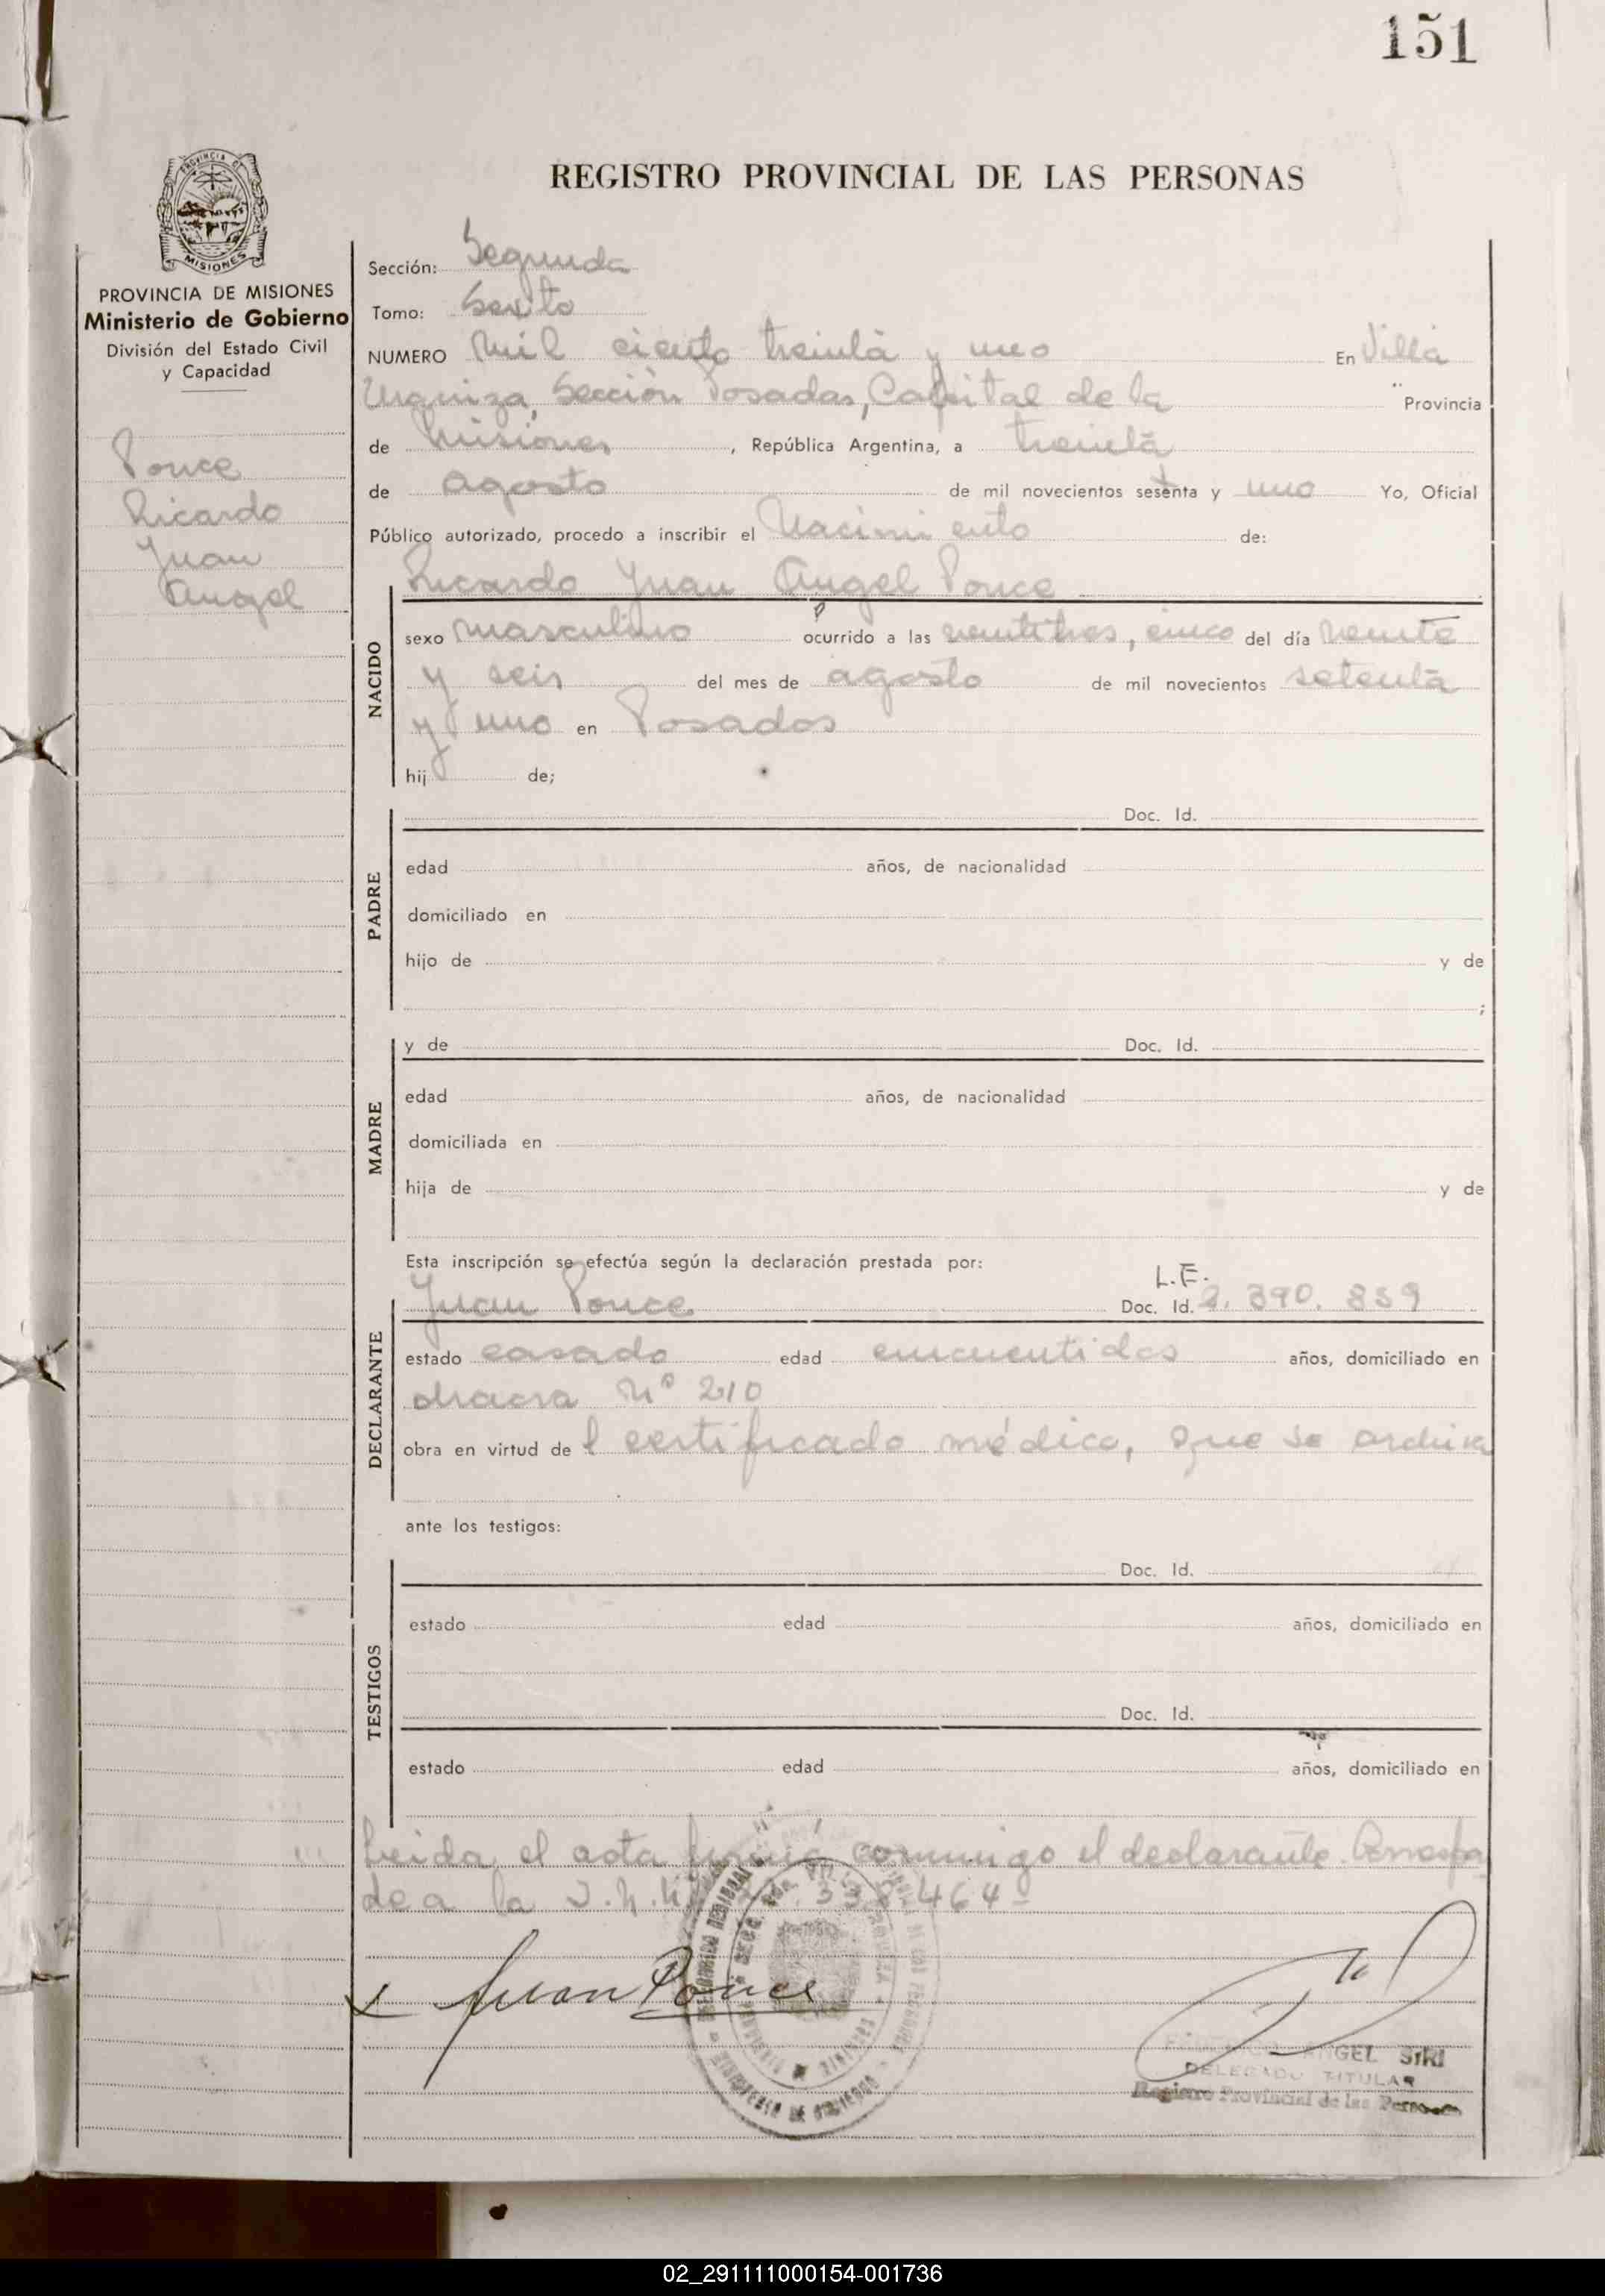 151
REGISTRO PROVINCIAL DE LAS PERSONAS
PROVINCIA DE
MISIONES
PROVINCIA DE MISIONES
Ministerio de Gobierno
División del Estado Civil
y Capacidad
Ponce
Ricardo
Juan
Angel
Sección: Segunda
Tomo: Sexto
NUMERO Mil ciento treinta y uno En Villa
Urquiza, Sección Posadas, Capital de la Provincia
de Misiones, República Argentina, a treinta
de agosto de mil novecientos sesenta y uno Yo, Oficial
Público autorizado, procedo a inscribir el Nacimiento de:
Ricardo Juan Angel Ponce
NACIDO
sexo masculino ocurrido a las veintitres, cinco del día veinte
y seis del mes de agosto de mil novecientos setenta
y uno en Posadas
hij de;
PADRE
Doc. Id.
edad años, de nacionalidad
domiciliado en
hijo de y de
;
MADRE
y de Doc. Id.
edad años, de nacionalidad
domiciliada en
hija de y de
Esta inscripción se efectúa según la declaración prestada por:
DECLARANTE
L.E.
Juan Ponce Doc. Id. 2.390.859
estado casado edad cincuentidos años, domiciliado en
chacra Nº 210
obra en virtud de l certificado médico, que se archiva
ante los testigos:
TESTIGOS
Doc. Id.
estado edad años, domiciliado en
Doc. Id.
estado edad años, domiciliado en
Leida el acta firma conmigo el declarante. Correspon
de a la 464-
Juan Ponce
ANGEL
DELEGADO TITULAR
Registro Provincial de las Personas
MINISTERIO DE GOBIERNO
02_291111000154-001736